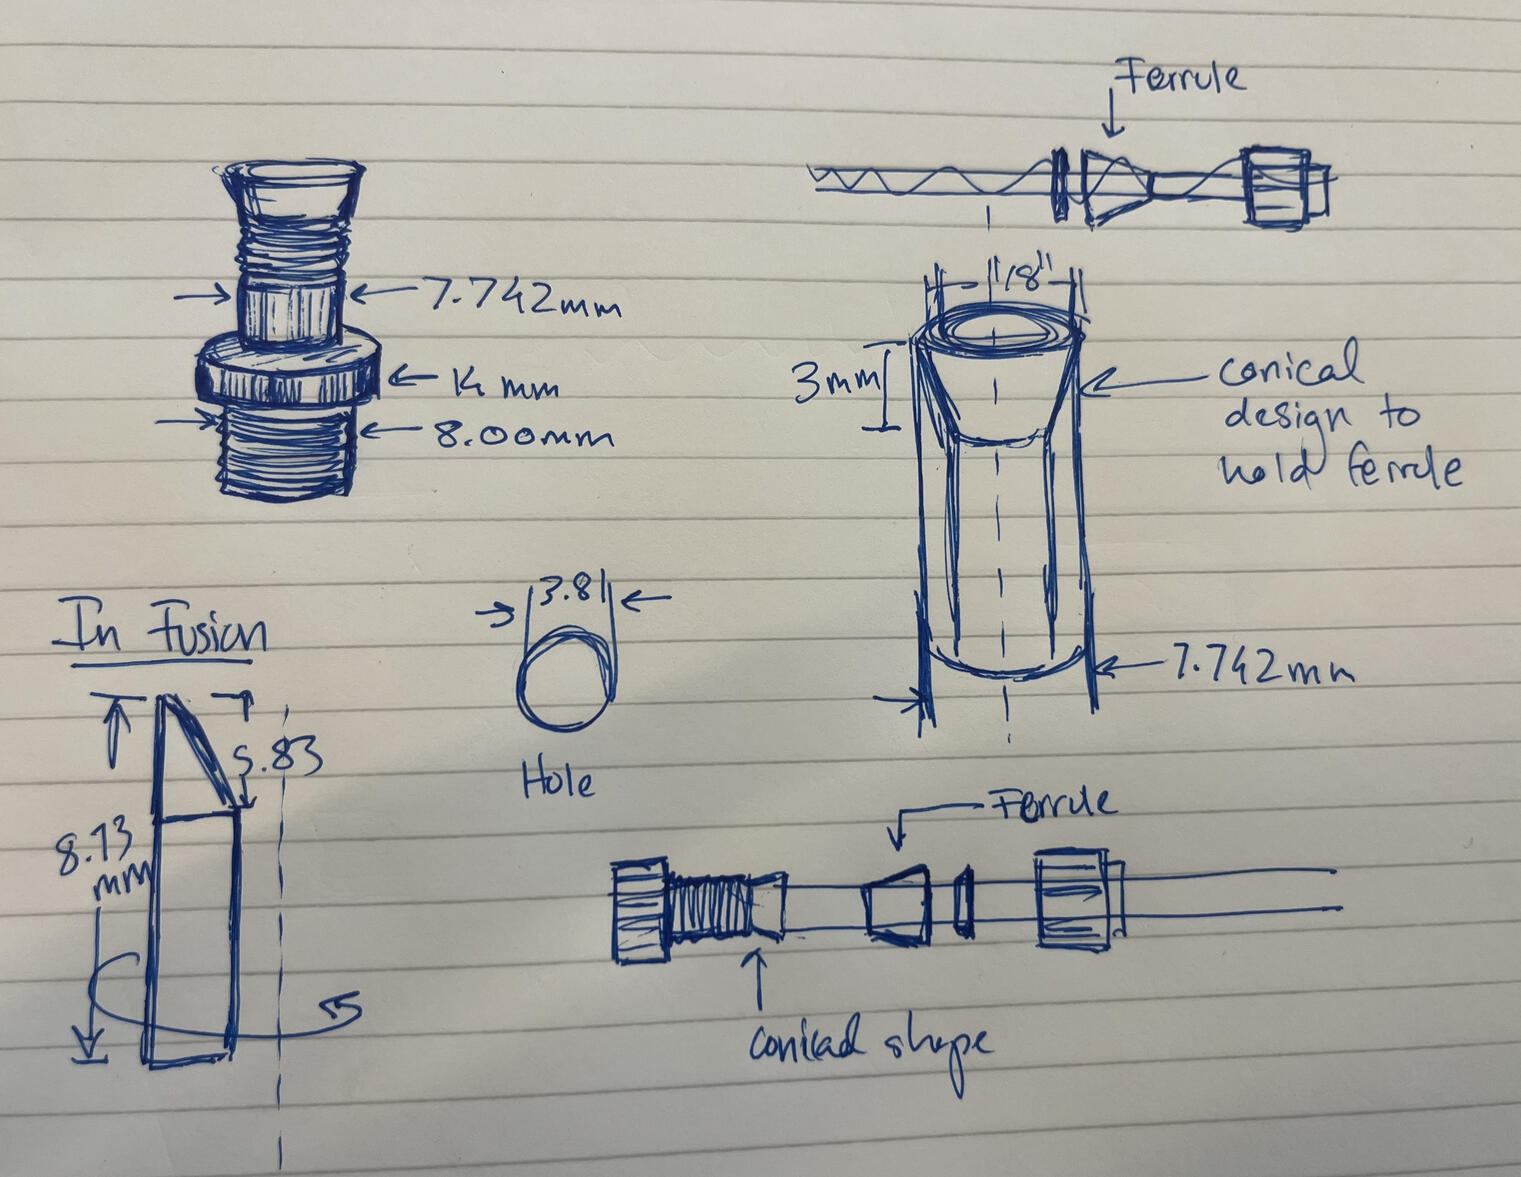 Ferrule
7.742mm
mm
8.00mm
18"
3mm
conical
design to
hold ferrule
In Fusion
3.81
Hole
7.742mm
5.83
8.73
mm
Ferrule
conical shape